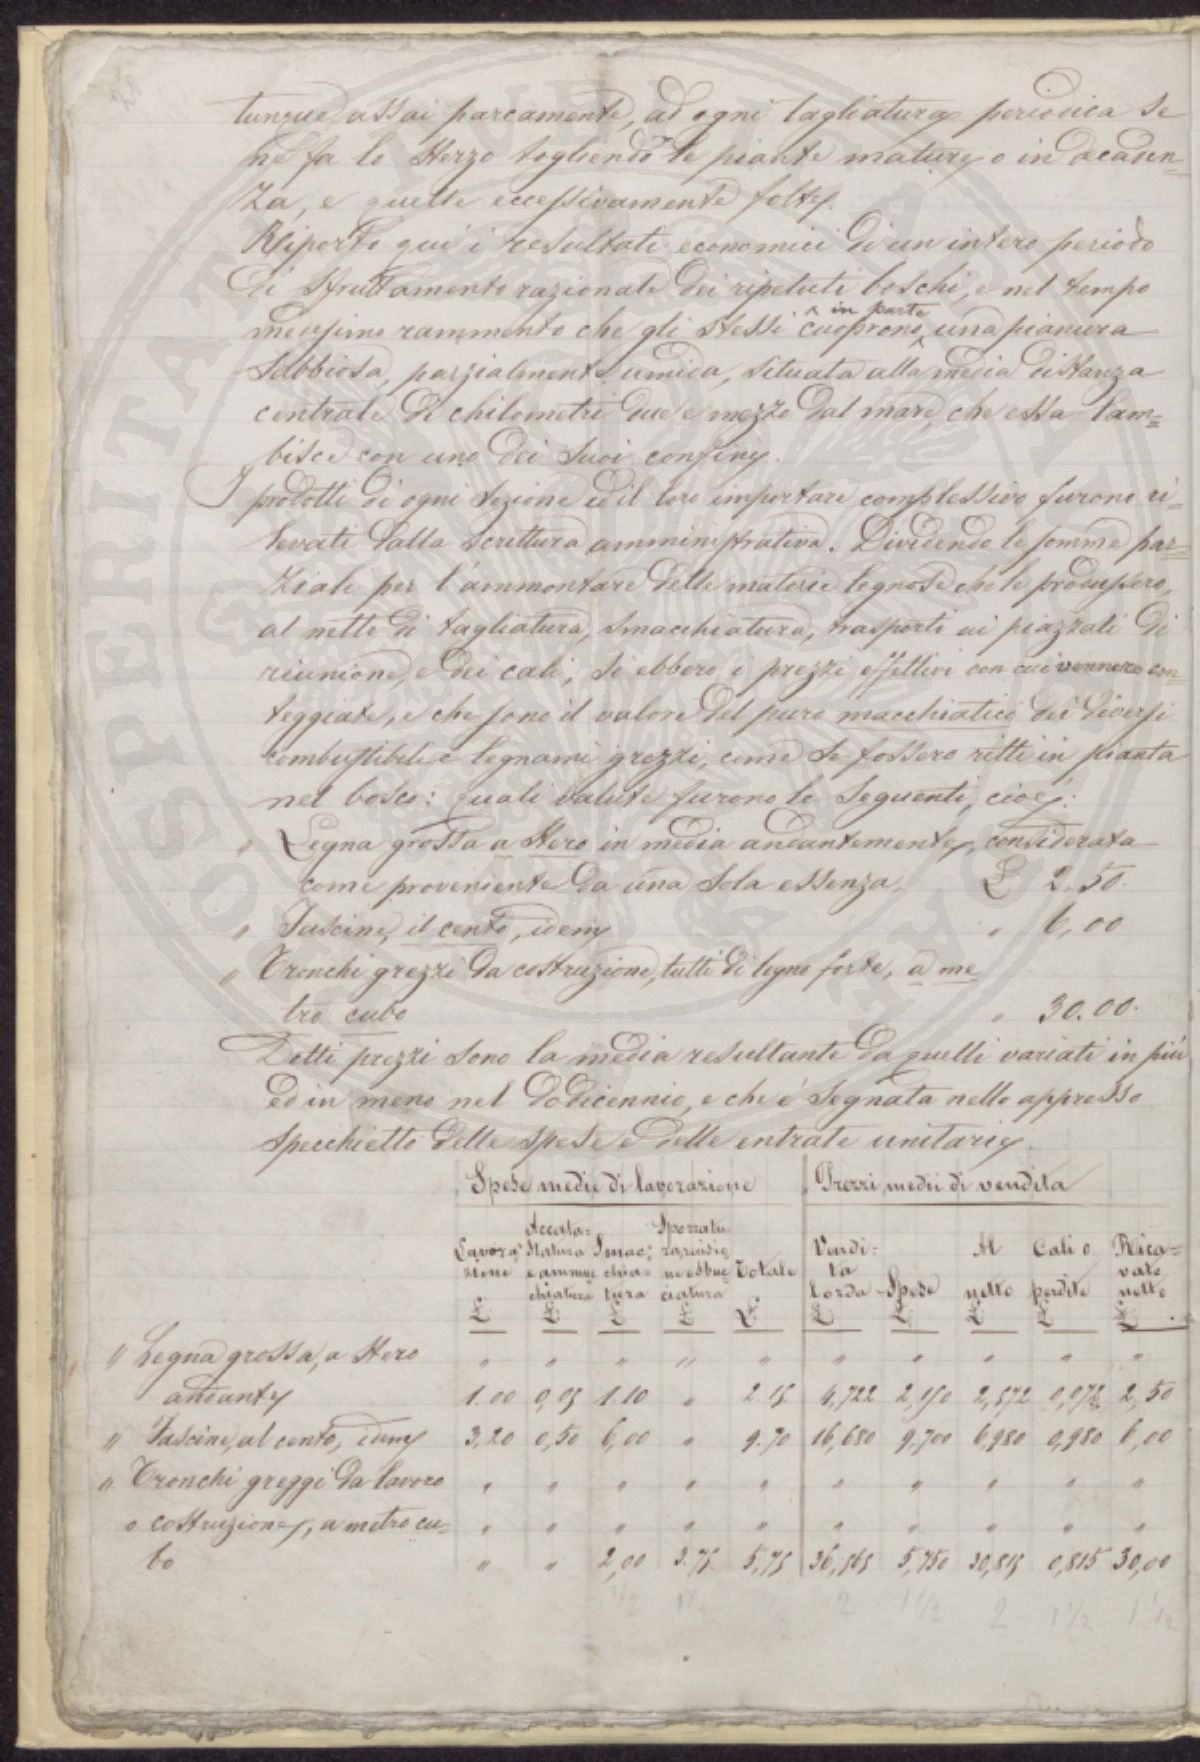 tunque assai parcamente, ad ogni tagliatura periodica se
ne fa lo sterzo togliendo le piante mature o in decaden=
za, e quelle eccessivamente folte.
Riporto qui i resultati economici di un intero periodo
di sfruttamento razionale dei ripetuti boschi, e nel tempo
medesimo rammento che gli stessi cuoprono in parte una pianura
sabbiosa, parzialmente umida, situata alla media distanza
centrale di chilometri due e mezzo dal mare, che essa lam=
bisce con uno dei suoi confini.
I prodotti di ogni sezione ed il loro importare complessivo furono ri=
levati dalla scrittura amministrativa. Dividendo le somme par=
ziali per l'ammontare delle materie legnose che le produssero,
al netto di tagliatura, smacchiatura, trasporti ai piazzali di
riunione, e dei cali, si ebbero i prezzi effettivi con cui vennero con=
teggiate, e che sono il valore del puro macchiatico dei diversi
combustibili e legnami grezzi, come se fossero ritti in pianta
nel bosco: quali valute furono le seguenti, cioè:
" Legna grossa a stero in media andantemente, considerata
come proveniente da una sola essenza, £ 2.50.
" Fascine, il cento, idem " 6,00
" Tronchi grezzi da costruzione, tutti di legno forte, a me
tro cubo " 30.00.
Detti prezzi sono la media resultante da quelli variati in più
ed in meno nel dodicennio, e che è segnata nello appresso
specchietto delle spese e delle entrate unitarie.
Spese medie di lavorazione Prezzi medii di vendita
Lavora zione £ Accata= statura e ammuc chiatura £ Smac= chia= tura £ Totale £ Vendi= ta lorda £ Spese £ Al netto £ Cali o perdite £ Rica= vato netto £
" Legna grossa, a stero " " " " " " " " " "
andante 1.00 0,05 1.10 " 2.15 4,722 2,150 2,572 0,072 2,50
" Fascine, al cento, idem 3,20 0,50 6,00 " 9.70 16,680 9,700 6,980 0,980 6,00
" Tronchi greggi da lavoro " " " " " " " " " "
o costruzione, a metro cu= " " " " " " " " " "
bo " " 2,00 3.75 5,75 36,565 5,750 30,815 0,815 30,00